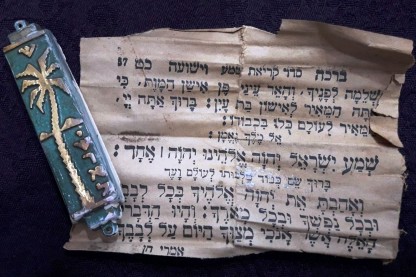 ברכה סדר קריאת שמע
שלמה לפניך, והאר עיני פן אישן המות, כי
אתה המאיר לאישון בת עין: ברוך אתה יי,
המאיר לעולם כלו בכבודו:
אל מלך נאמן:
שמע ישראל יהוה אלהינו יהוה אחד:
ברוך שם כבוד מלכותו לעולם ועד
ואהבת את יהוה אלהיך בכל לבבך
ובכל נפשך ובכל מאדך: והיו הדברים
האלה אשר אנכי מצוך היום על לבבך